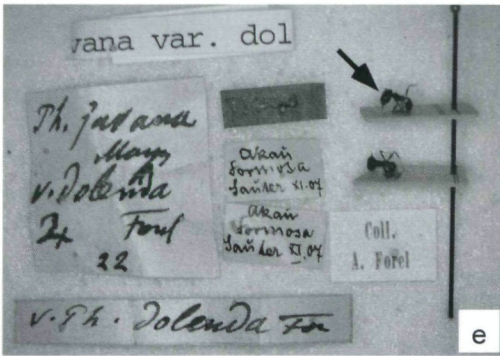 vana var. dol
Th. javana
Mayr
v. dolenda
Forel
22
Akaú
Formosa
Sauter XI.07
Akaú
Formosa
Sauter XI.07
Coll.
A. Forel
v. Th. dolenda For
e